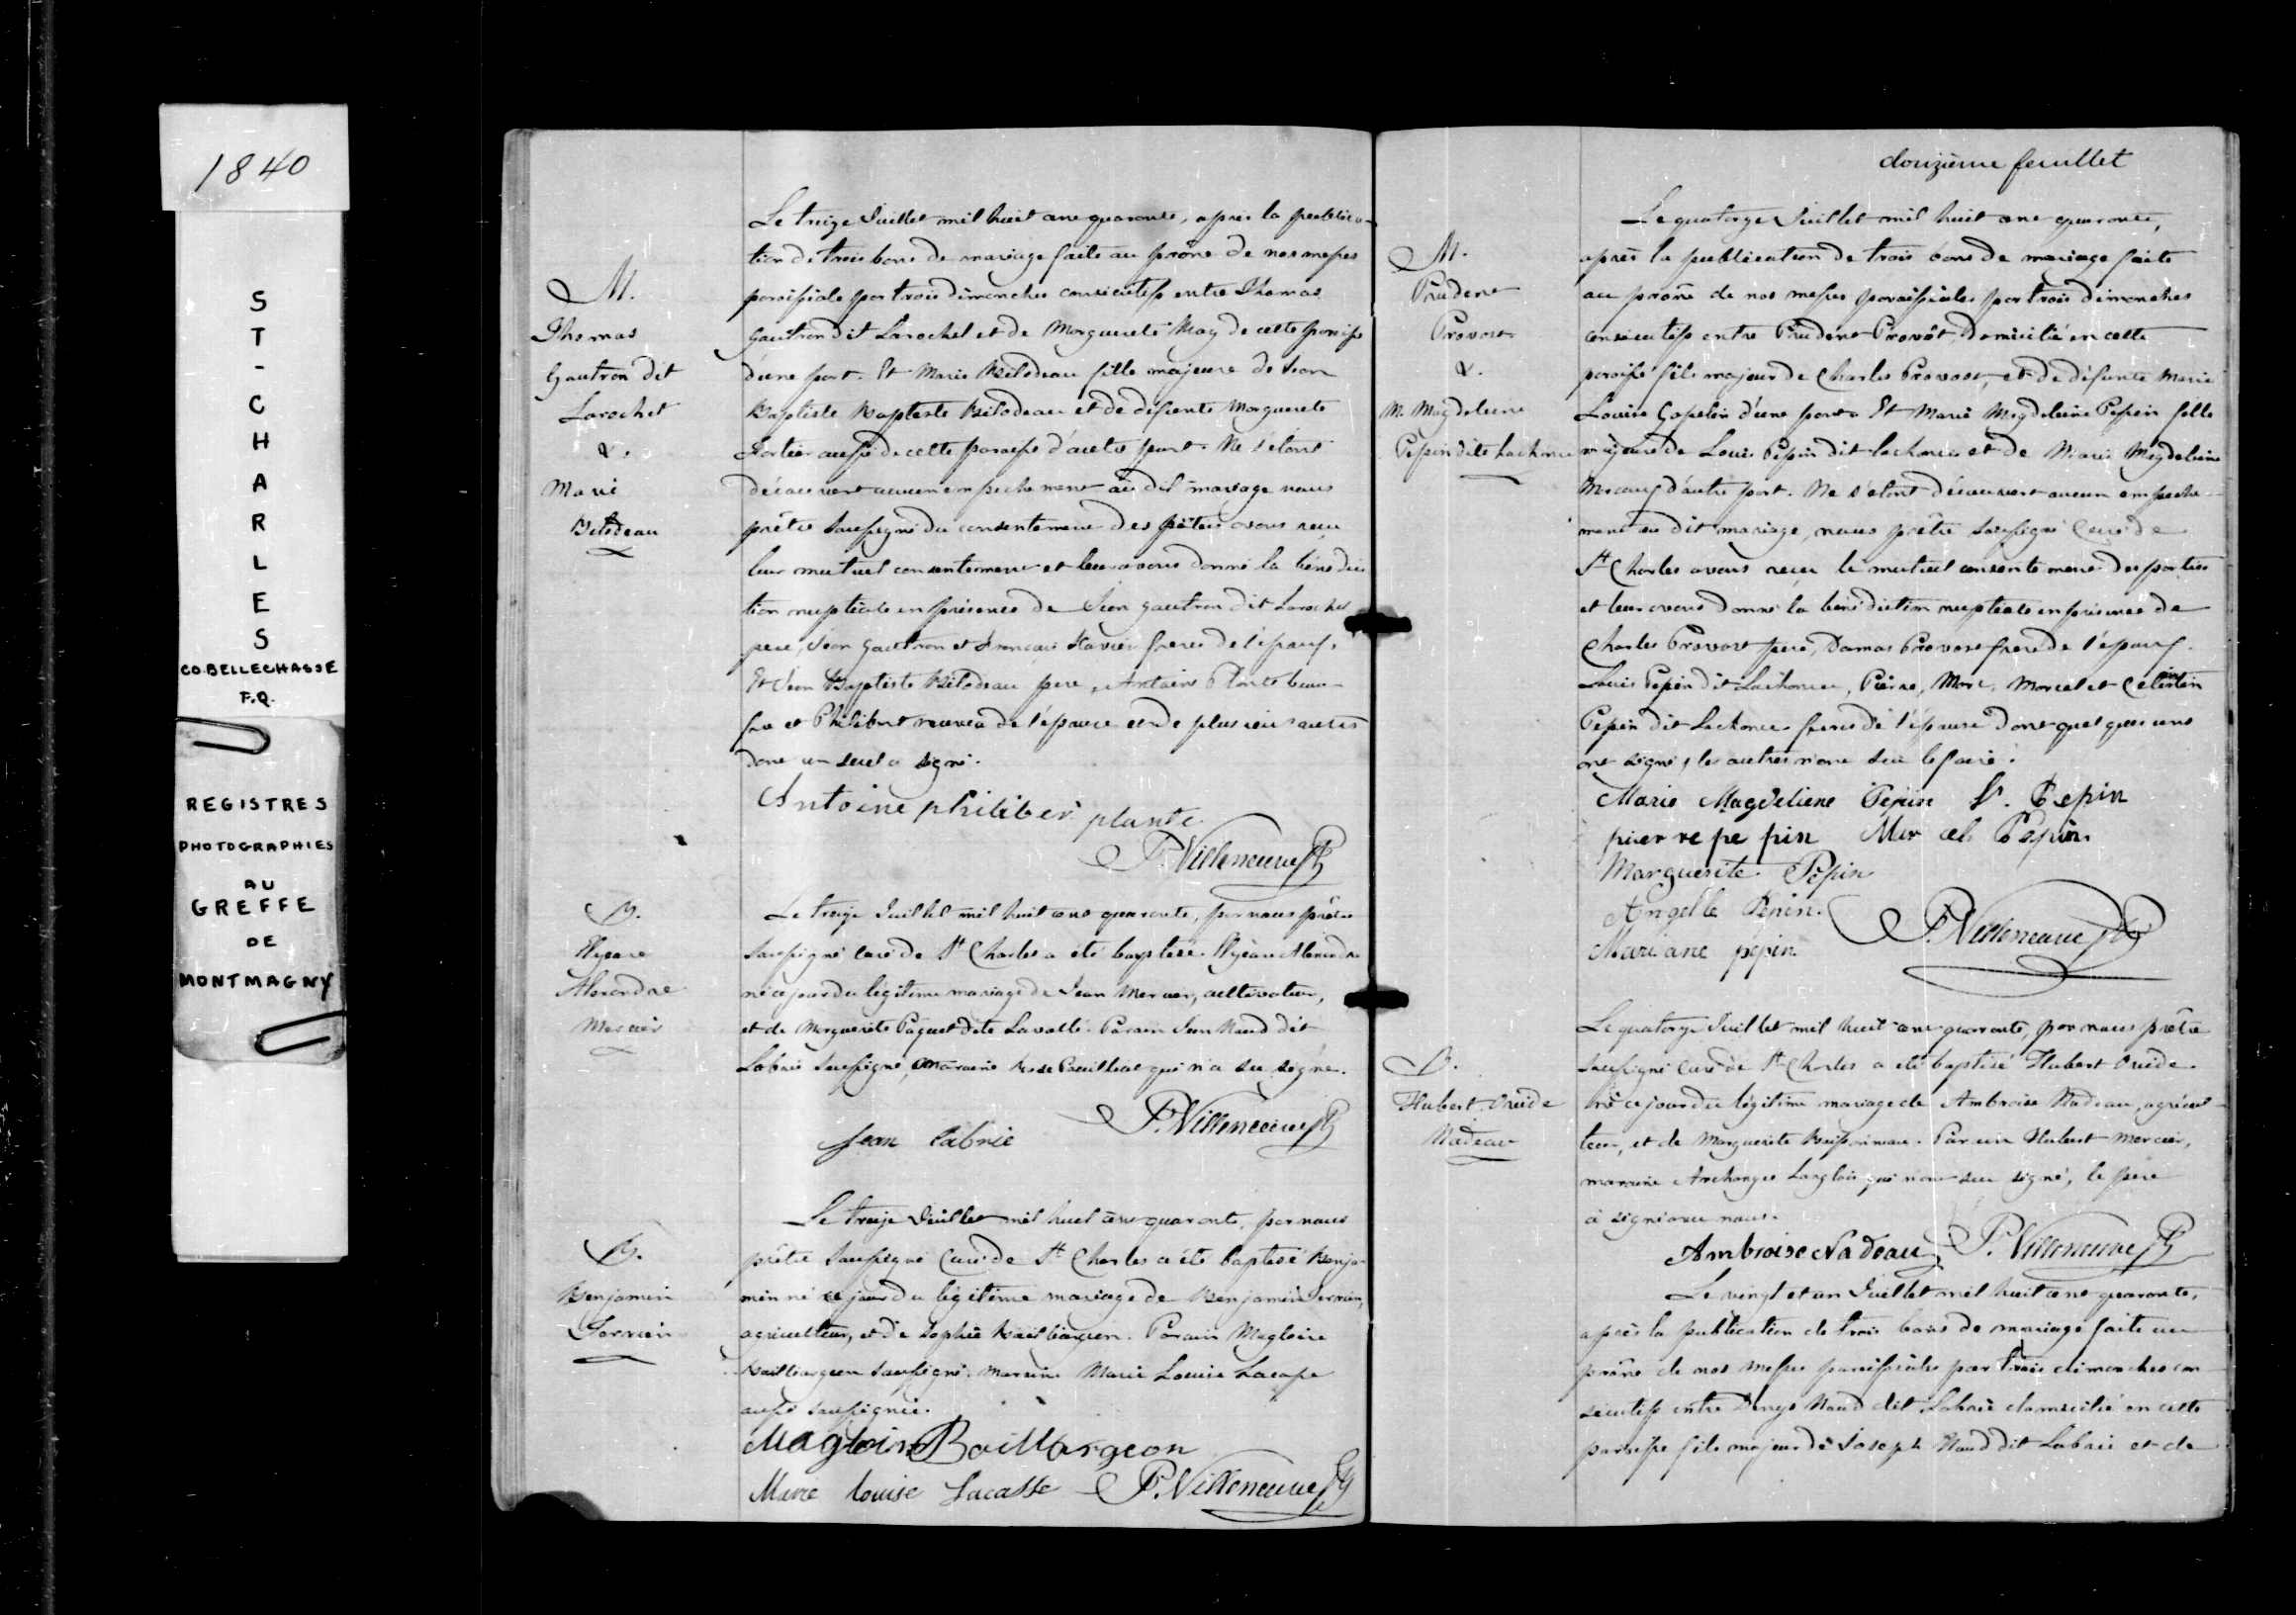 1840
ST-CHARLES
CO. BELLECHASSE
P.Q.
REGISTRES
PHOTOGRAPHIES
AU
GREFFE
DE
MONTMAGNY
M.
Thomas
Gautron dit
Larochel
&.
Marie
Bilodeau
Le treize Juillet mil huit cent quarante, après la publica-
tion de trois bans de mariage faite au prône de nos messes
paroissiales par trois dimanches consécutifs entre Thomas
Gautron dit Larochel et de Marguerite May de cette paroisse
d'une part. Et Marie Bilodeau fille majeure de Jean
Baptiste Baptiste Bilodeau et de défunte Marguerite
Fortier aussi de cette paroisse d'autre part. Ne s'étant
découvert aucun empechement au dit mariage nous
prêtre soussigné du consentement des avons reçu
leur mutuel consentement et leur avons donné la bénédic
tion nuptiale en présence de Jean Gautron dit Larochel
pere, Jean Gautron et François Xavier freres de l'époux,
Et Jean Baptiste Bilodeau pere, Antoine Plante beau
et Philibert neveu de l'épouse et de plusieurs autres
dont un seul a signé.
Antoine philiber plante
P. Villeneuve Ptr
B.
Alexandre
Mercier
Le treize Juillet mil huit cent quarante, par nous prêtre
soussigné curé de St Charles a été baptisé Alexandre
né ce jour du légitime mariage de Jean Mercier, cultivateur,
et de Marguerite Paquet dite Lavallé. Parain Jean Naud dit
Labrie soussigné, maraine Rose Pouilliot qui n'a su signé.
Jean labrie
P. Villeneuve Ptr
B.
Benjamin
Le treize Juillet mil huit cent quarante, par nous
prêtre soussigné Curé de St Charles a été baptisé Benja-
min né ce jour du légitime mariage de Benjamin
agriculteur, et de Sophie Baillargeon. Parain Magloire
Baillargeon soussigné. Maraine Marie Louise Lacasse
aussi soussignée.
Magloire Baillargeon
Marie louise Lacasse P. Villeneuve Ptr
douzième feuillet
M.
Prudent
Provost
&.
M. Magdeleine
Pepin dite Lachance
Le quatorze Juillet mil huit cent quarante,
après la publication de trois bans de mariage faite
au prône de nos messes paroissiales par trois dimanches
consécutifs entre Prudent Provôt, domicilié en cette
paroisse fils majeur de Charles Provost, et de défunte Marie
Louise Gosselin d'une part. Et Marie Magdeleine Pepin fille
majeure de Louis Pepin dit lachance et de Marie Magdeleine
d'autre part. Ne s'étant découvert aucun empeche-
ment au dit mariage, nous prêtre soussigné Curé de
St Charles avons reçu le mutuel consentement des parties
et leur avons donné la bénédiction nuptiale en présence de
Charles Provost pere, Damas Provost frere de l'époux.
Louis Pepin dit Lachance, Pierre, Marc, Marcel et Celestin
Pepin dit Lachance freres de l'épouse dont quelques uns
ont signé, les autres n'ont su le faire.
Marie Magdeliene Pepin Pepin
pier re pe pin Mar cel Pepin
Marguerite Pepin
Angelle Pepin
Mariane pepin
P. Villeneuve Ptr
B.
Hubert Ovide
Nadeau
Le quatorze Juillet mil huit cent quarante, par nous prêtre
soussigné Curé de St Charles a été baptisé Hubert Ovide
né ce jour du légitime mariage de Ambroise Nadeau, agricul-
teur, et de Marguerite Buissonneau. Parain Hubert Mercier,
maraine Archange Langlois qui n'ont su signé, le pere
a signé avec nous.
Ambroise Nadeau P. Villeneuve Ptr
Le vingt et un Juillet mil huit cent quarante,
après la publication de trois bans de mariage faite au
prône de nos messes paroissiales par trois dimanches con
secutifs entre Denys Naud dit Labrie domicilié en cette
paroisse fils majeur de Joseph Naud dit Labrie et de